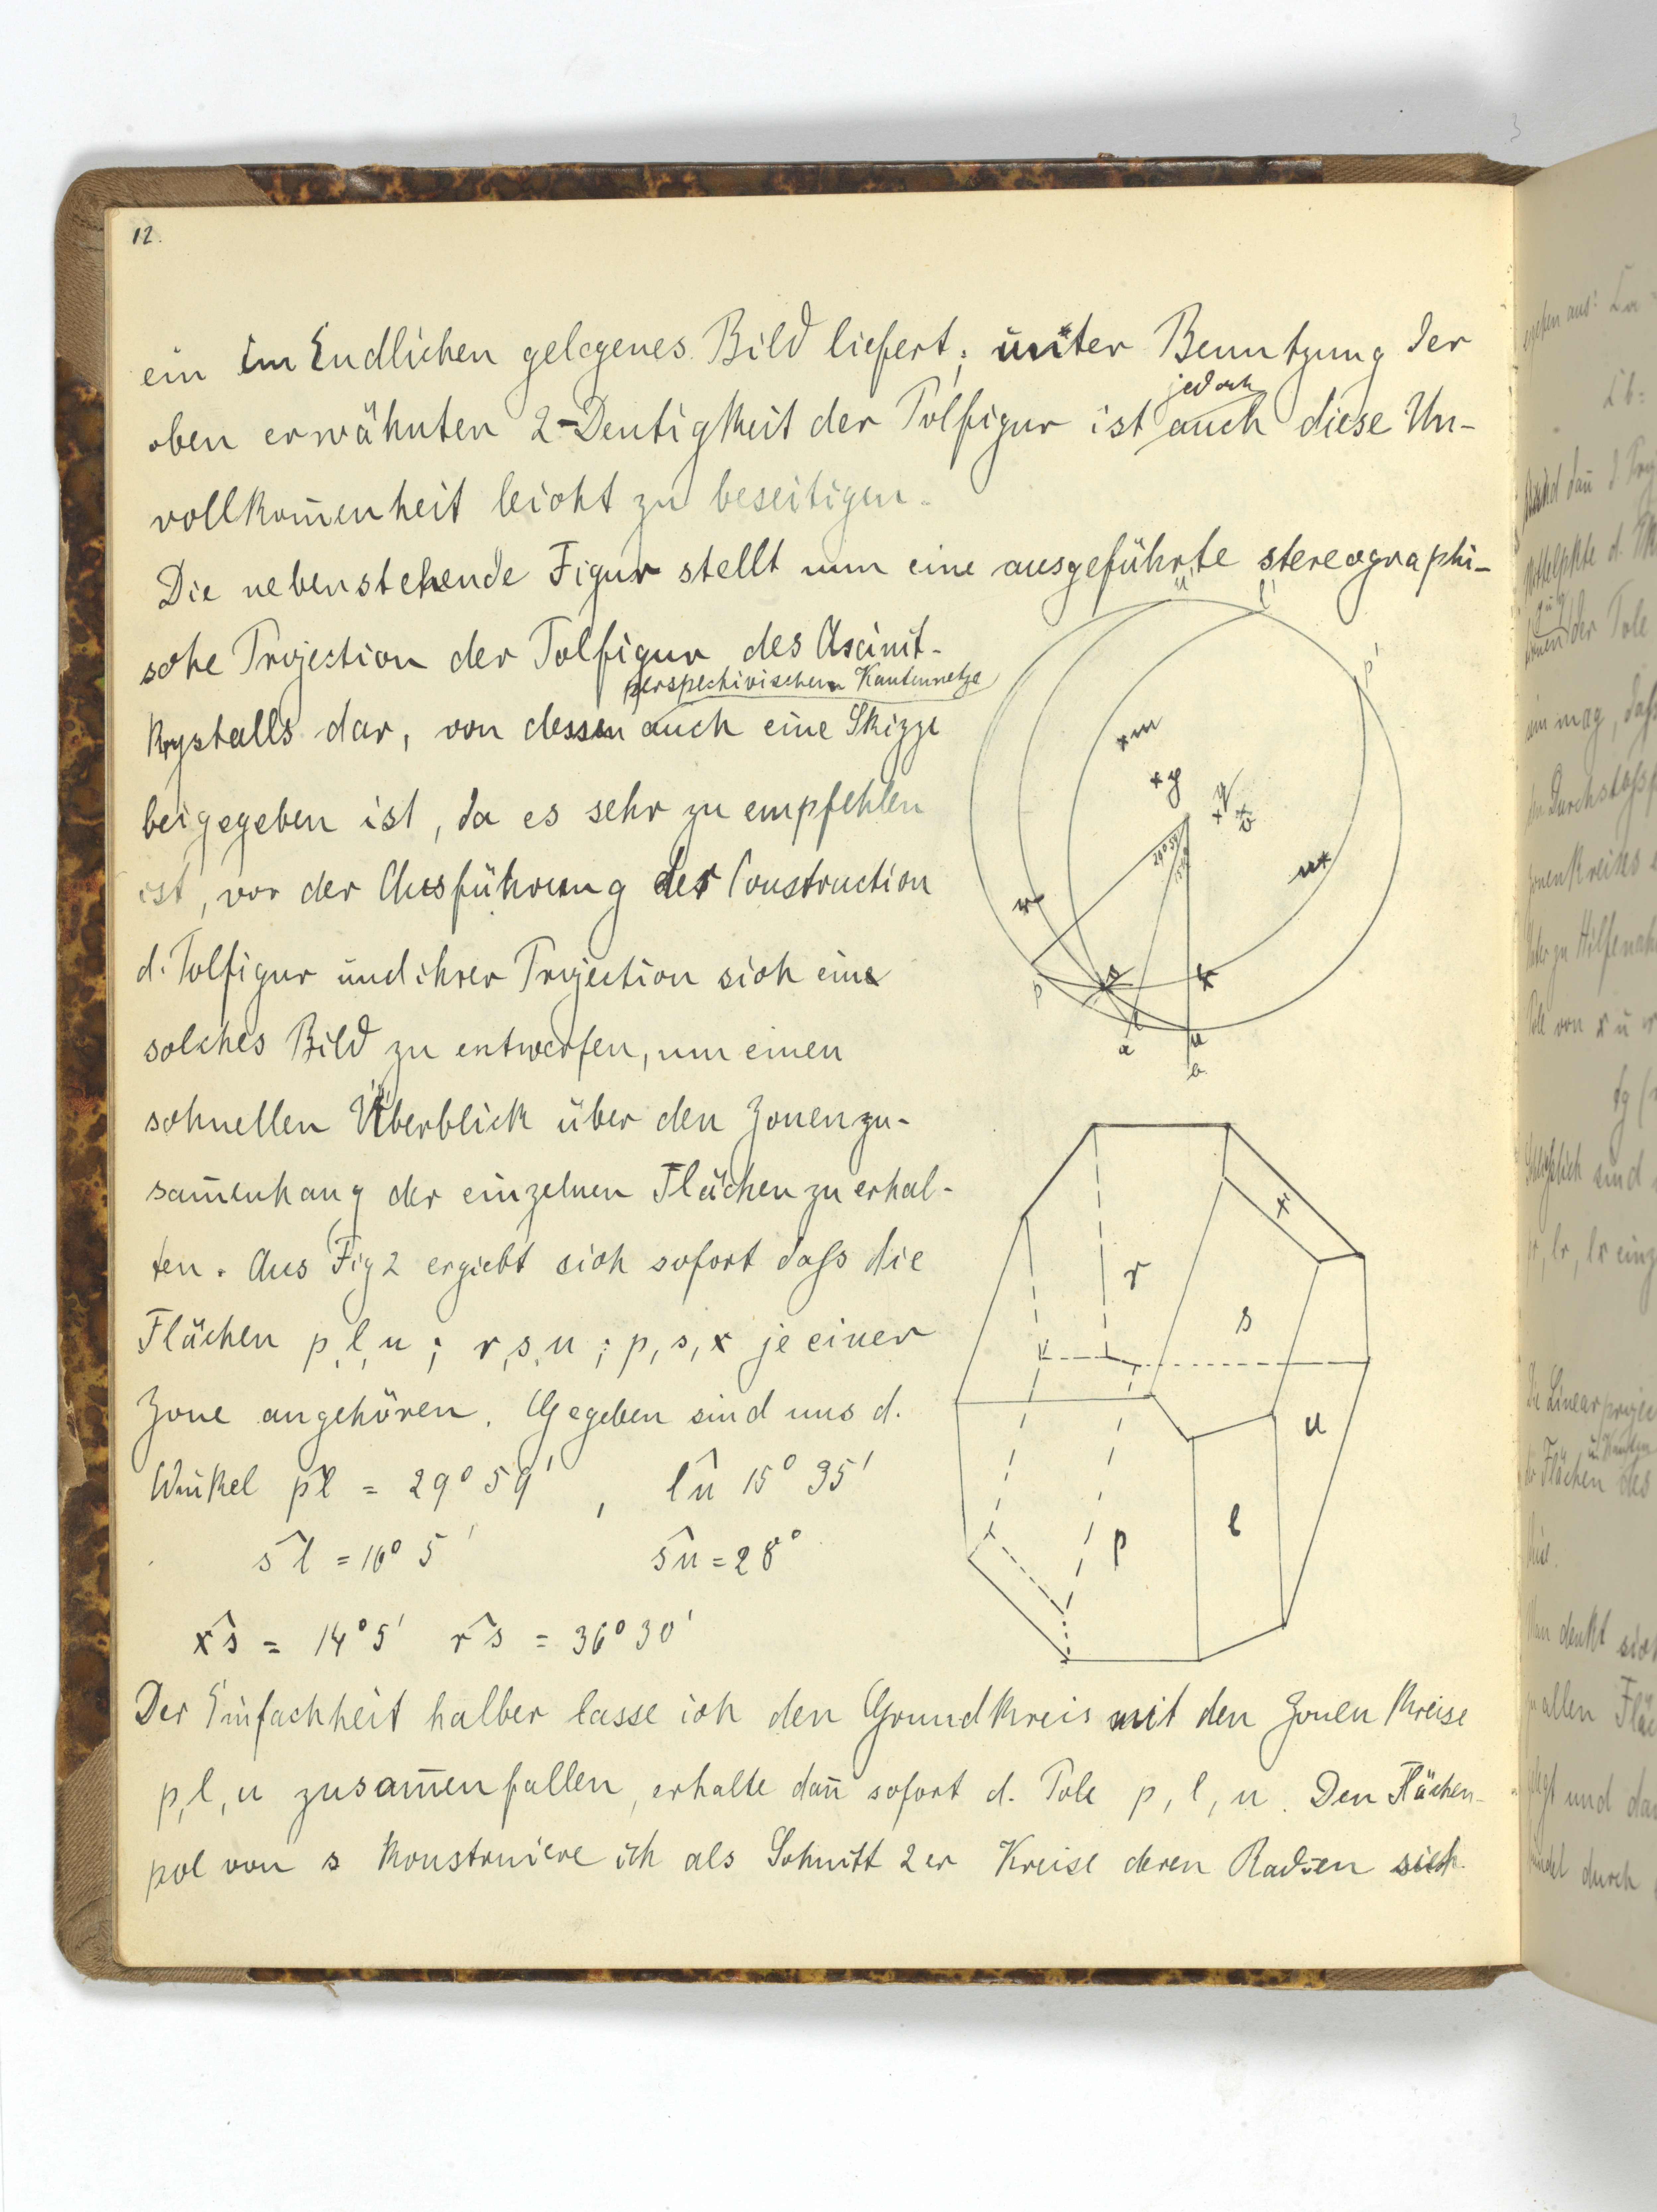 12.
ein im Endlichen gelegenes Bild liefert; unter Benutzung der
jedoch
oben erwähnten 2-Deutigkeit der Polfigur ist auch diese Un-
vollkom̄enheit leicht zu beseitigen.
Die nebenstehende Figur stellt nun eine ausgeführte stereographi-
sche Projection der Polfigur des Axinit-
perspektivischem Kantennetze
krystalls dar, von dessen auch eine Skizze
beigegeben ist, da es sehr zu empfehlen
ist, vor der Ausführung der Construction
d. Polfigur und ihrer Projection sich eine
solches Bild zu entwerfen, um einen
schnellen Überblick über den Zonenzu-
sam̄enhang der einzelnen Flächen zu erhal-
ten. Aus Fig 2 ergiebt sich sofort daſs die
Flächen p, l, u ; r, s, u ; p, s, x je einer
Zone angehören. Gegeben sind uns d.
Winkel p̂l = 29° 59' , l̂u 15° 35'
ŝl = 16° 5' ŝu = 28°
x̂s = 14° 5' r̂s = 36° 30'
Der Einfachheit halber lasse ich den Grundkreis mit den Zonen Kreise
p, l, u zusam̄enfallen, erhalte dan̄ sofort d. Pole p, l, u. Den Flächen-
pol von s konstruiere ich als Schnitt 2er Kreise deren Radien sich
u'
l'
p'
m
y
v
n
r
s
x
p
l
u
a
b
29° 59'
x
r
s
u
l
p